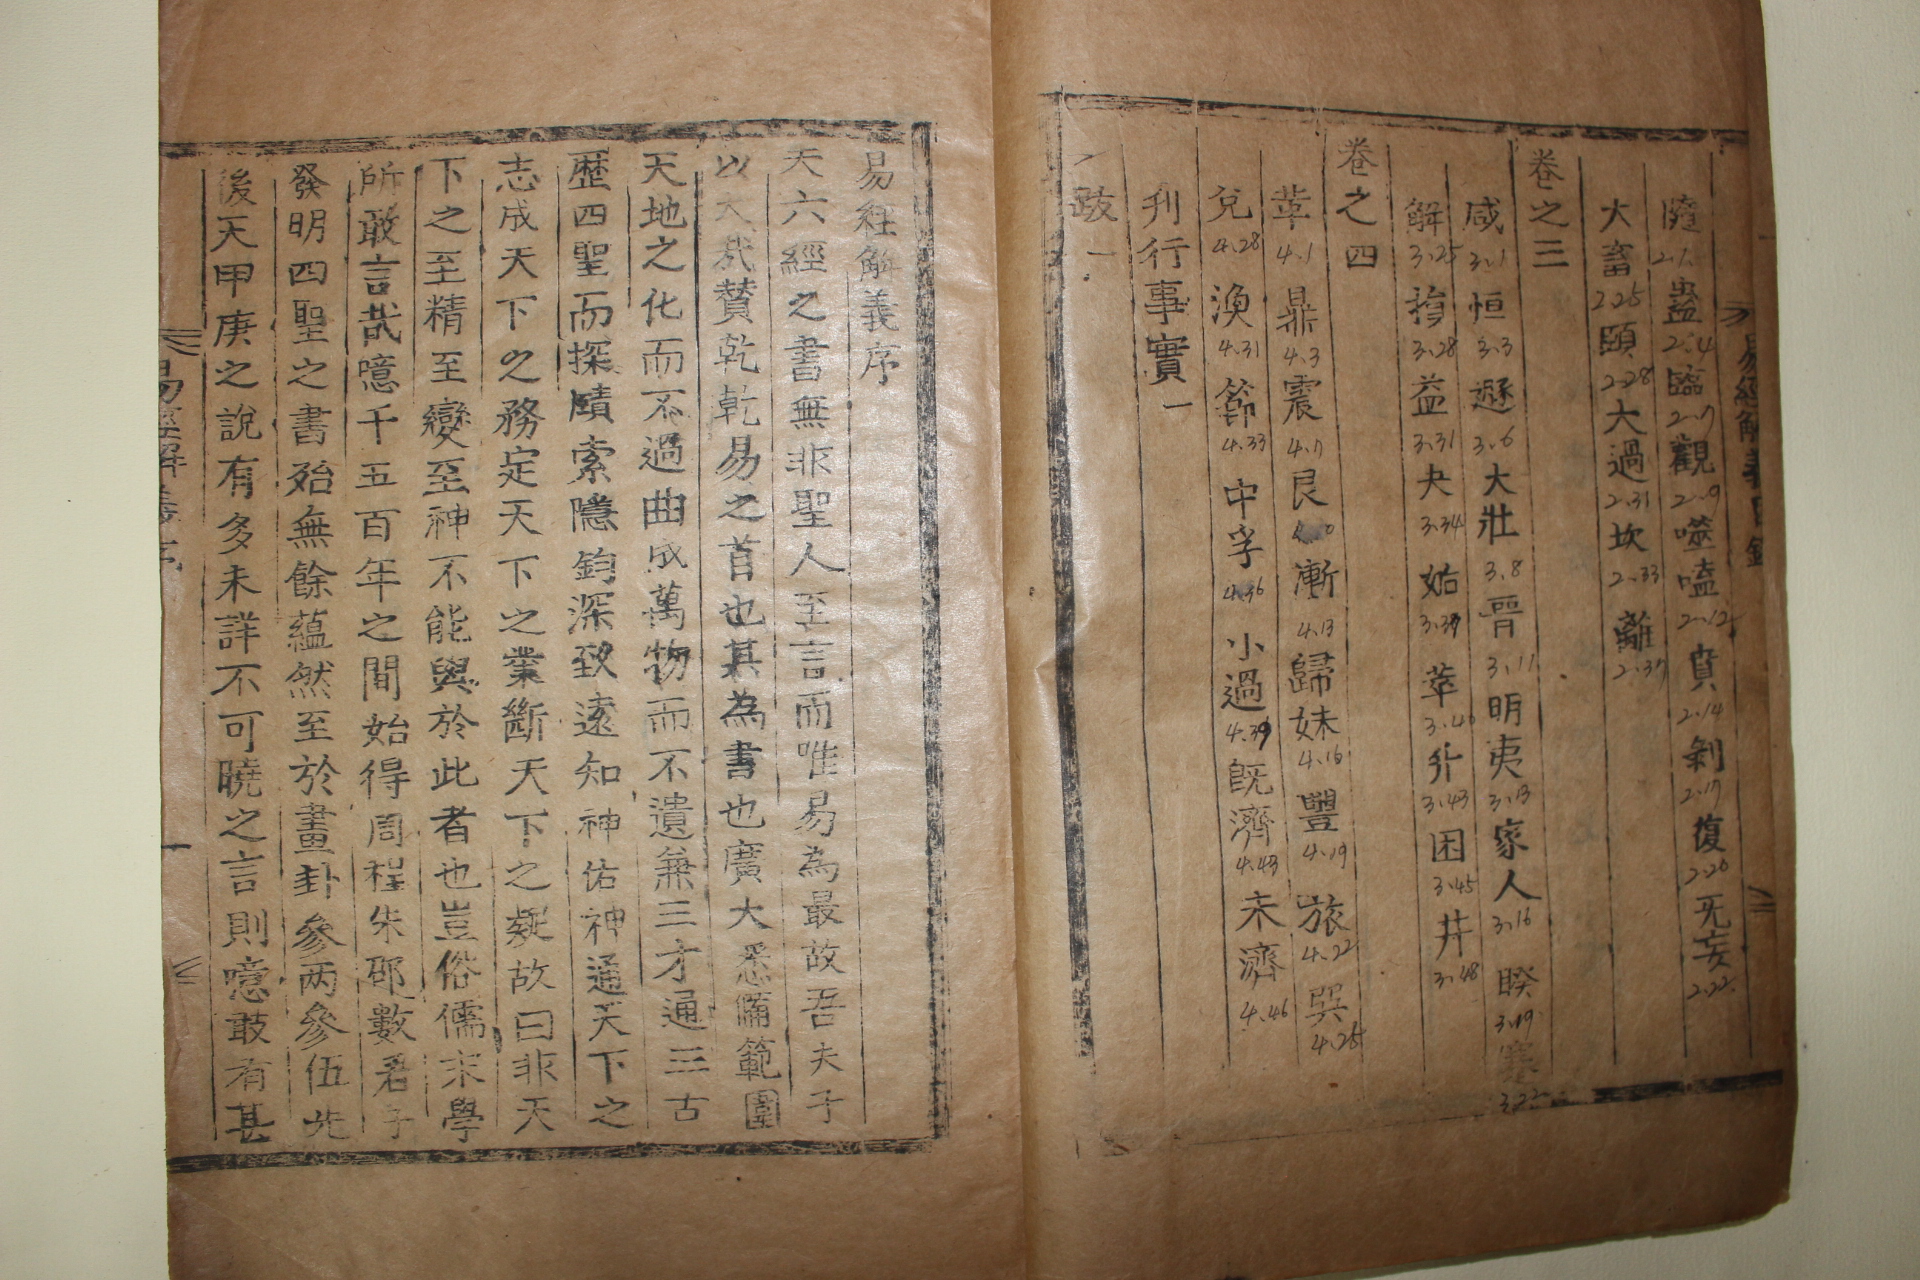 易經解義目錄
隨 2.1 蠱 2.4 臨 2.7 觀 2.9 噬嗑 2.12 賁 2.14 剝 2.17 復 2.20 无妄 2.22
大畜 2.25 頤 2.28 大過 2.31 坎 2.33 離 2.37
卷之三
咸 3.1 恒 3.3 遯 3.6 大壯 3.8 晋 3.11 明夷 3.13 家人 3.16 睽 3.19 蹇 3.22
解 3.25 損 3.28 益 3.31 夬 3.34 姤 3.37 萃 3.40 升 3.43 困 3.45 井 3.48
卷之四
革 4.1 鼎 4.3 震 4.7 艮 漸 4.13 歸妹 4.16 豐 4.19 旅 4.22 巽 4.25
兌 4.28 渙 4.31 節 4.33 中孚 4.36 小過 4.39 旣濟 4.43 未濟 4.46
刊行事實一
跋一
易經解義序
夫六經之書無非聖人至言而唯易為最故吾夫子
以大哉贊乾乾易之首也其為書也廣大悉備範圍
天地之化而不過曲成萬物而不遺兼三才通三古
歷四聖而探賾索隱鈎深致遠知神佑神通天下之
志成天下之務定天下之業斷天下之疑故曰非天
下之至精至變至神不能與於此者也豈俗儒末學
所敢言哉噫千五百年之間始得周程朱邵數君子
發明四聖之書殆無餘蘊然至於畫卦參兩參伍先
後天甲庚之說有多未詳不可曉之言則噫敢有甚
易經解義序
一